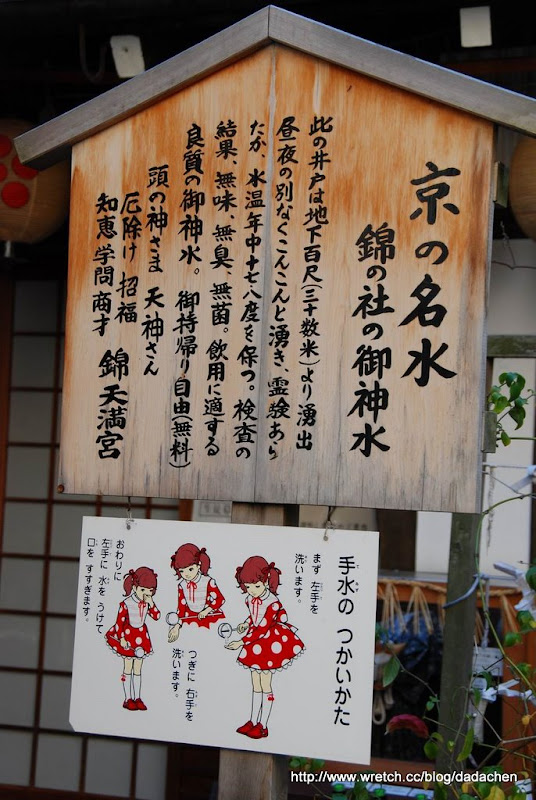 京の名水
錦の社の御神水
此の井戸は地下百尺(三十数米)より湧出
昼夜の別なくこんこんと湧き、霊験あら
たか、水温年中十七八度を保つ。検査の
結果、無味、無臭、無菌。飲用に適する
良質の御神水。御持帰り自由(無料)
頭の神さま 天神さん
厄除け 招福
知恵学問商才 錦天満宮
手水の つかいかた
まず 左手を
洗います。
つぎに 右手を
洗います。
おわりに
左手に 水を うけて
口を すすぎます。
http://www.wretch.cc/blog/dadachen